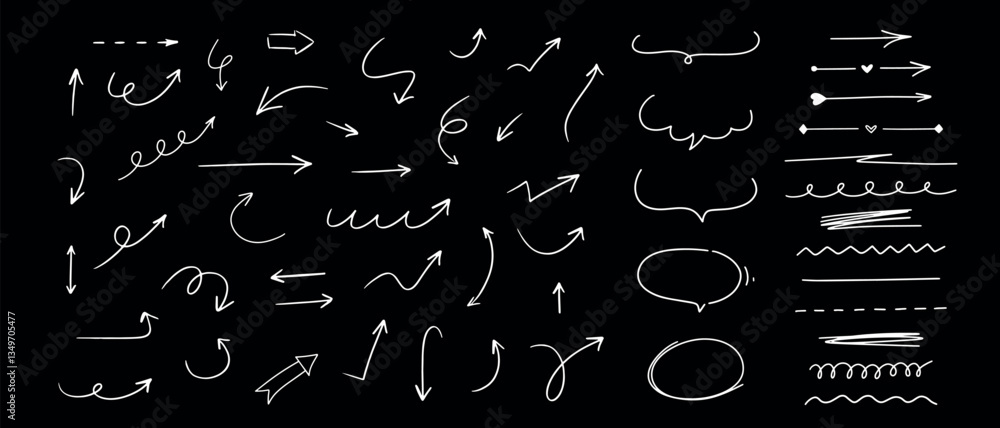 Adobe Stock | #1349705477